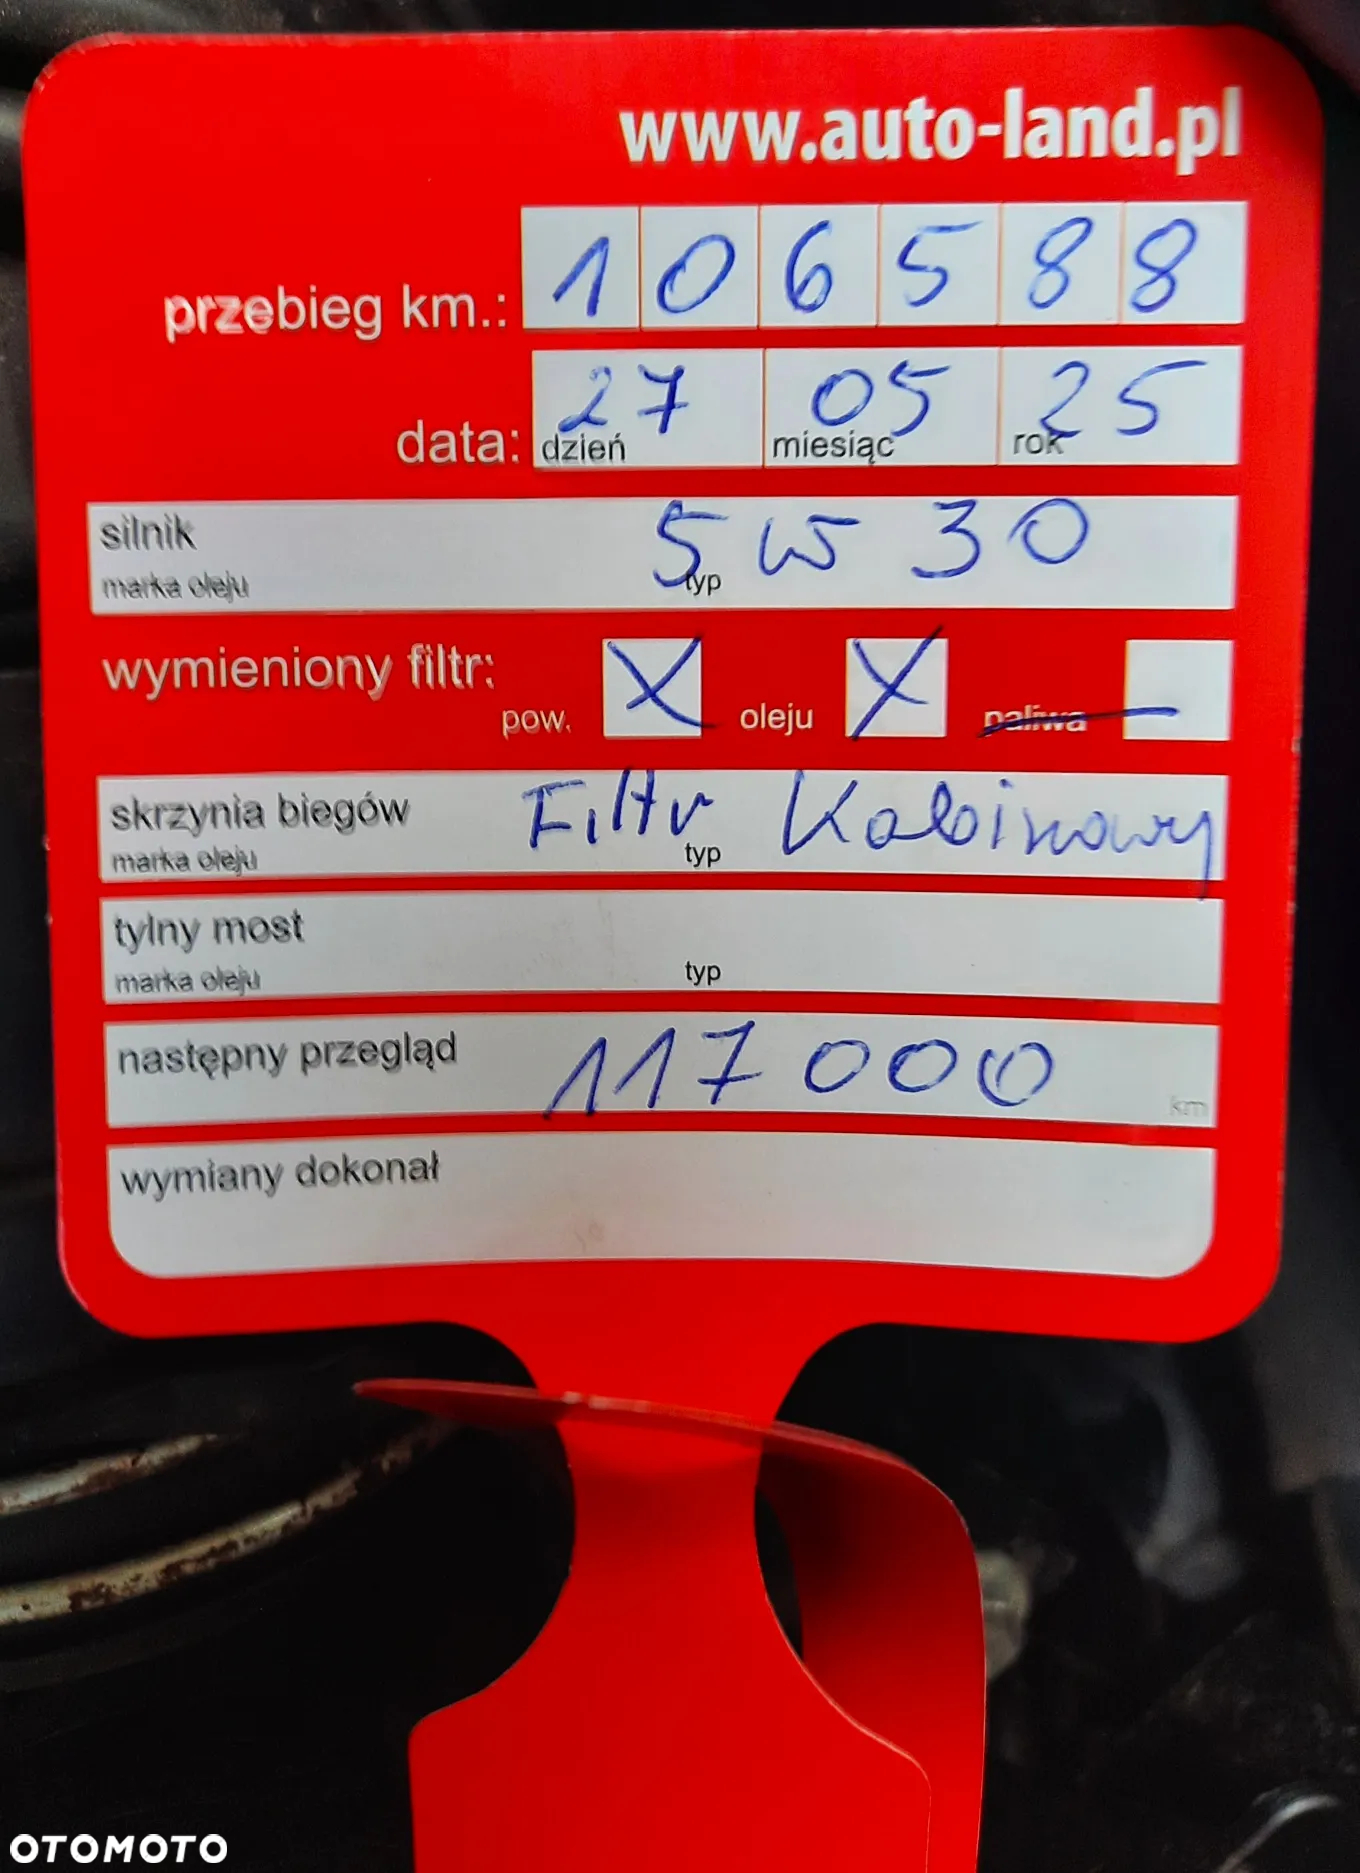 www.auto-land.pl
przebieg km.: 106588
data: 27 dzień 05 miesiąc 25 rok
silnik 5W30
marka oleju typ
wymieniony filtr: pow. X oleju X paliwa —
skrzynia biegów Filtr Kabinowy
marka oleju typ
tylny most
marka oleju typ
następny przegląd 117000 km
wymiany dokonał
OTOMOTO